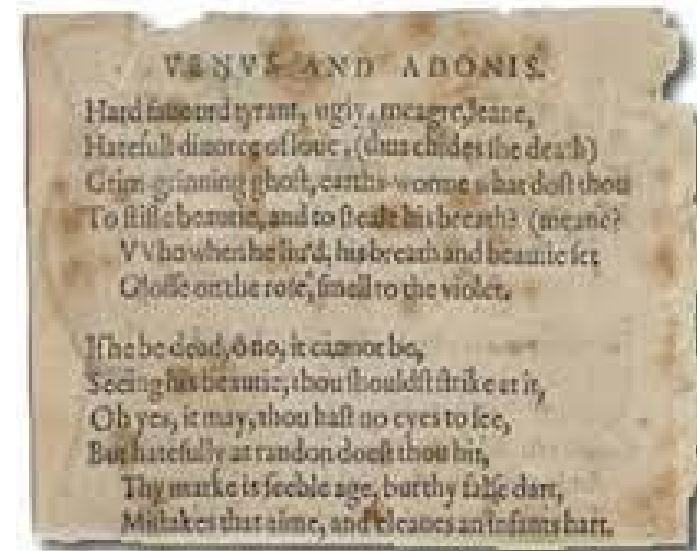 VENVS AND ADONIS.
Hard fauourd tyrant, ugly, meagre, leane,
Hatefull diuorce of loue, (thus chides she death)
Grim-grinning ghost, earths-worme what dost thou
To stifle beautie, and to steale his breath? (meane?
VVho when he liu'd, his breath and beautie set
Glosse on the rose, smell to the violet.
If he be dead, ô no, it cannot be,
Seeing his beautie, thou shouldst strike at it,
Oh yes, it may, thou hast no eyes to see,
But hatefully at randon doest thou hit,
Thy marke is feeble age, but thy false dart,
Mistakes that aime, and cleaues an infants hart.